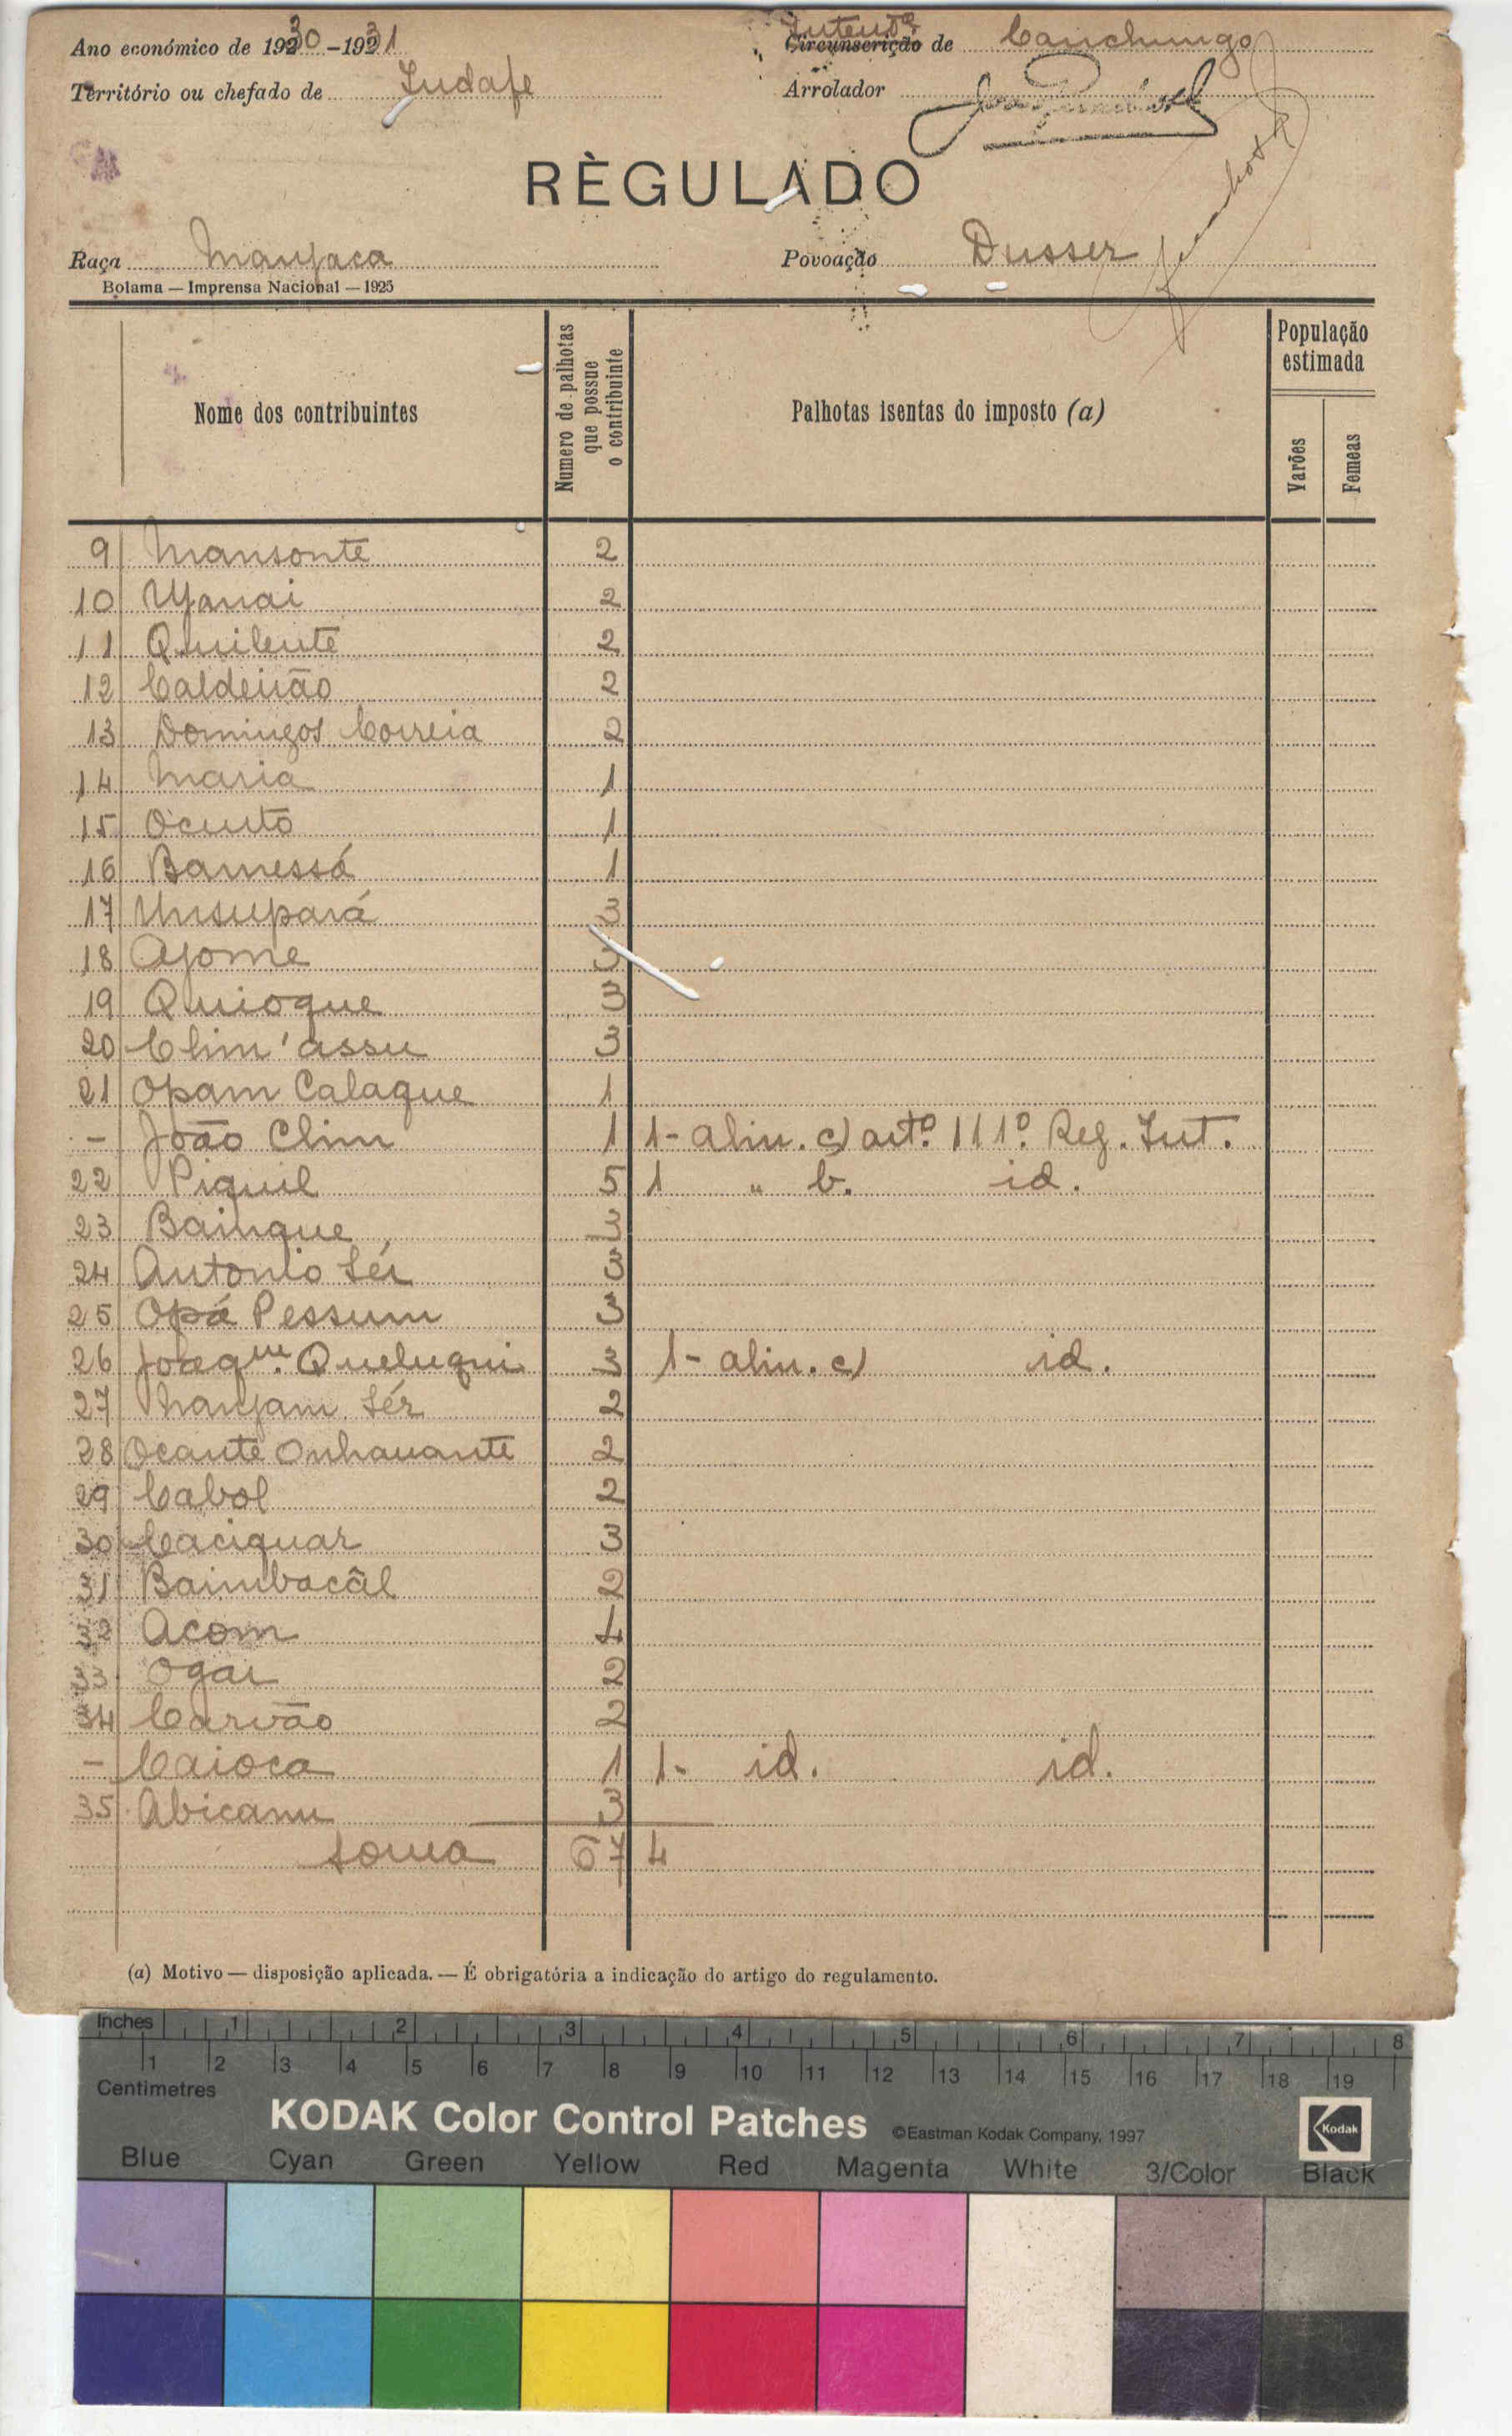 Ano económico de 1930-1931 Intend.ª Circunscrição de Canchungo
Território ou chefado de Indafe Arrolador
RÈGULADO
Raça Manjaca Povoação Dusser
Bolama — Imprensa Nacional — 1925
Nome dos contribuintes
Numero de palhotas que possue o contribuinte
Palhotas isentas do imposto (a)
População estimada
Varões
Femeas
9 Mansonte 2
10 Yanai 2
11 Quilente 2
12 Caldeirão 2
13 Domingos Correia 2
14 Maria 1
15 Ocuto 1
16 Bamessá 1
17 Unsupará 3
18 Ajome 3
19 Quioque 3
20 Clim'assu 3
21 Opam Calaque 1
- João Clim 1 1- alin. c) artº. 111º. Reg. Int.
22 Piquil 5 1 " b. id.
23 Bainque 3
24 Antonio Sér 3
25 Opá Pessum 3
26 Joaqm. Queluqui 3 1- alin. c) id.
27 Manjam Sér 2
28 Ocante Onhauante 2
29 Cabol 2
30 Caciquar 3
31 Baimbacâl 2
32 Acom 4
33 Ogai 2
34 Carvão 2
- Caioca 1 1- id. id.
35 Abicanu 3
Soma 67 4
(a) Motivo — disposição aplicada. — É obrigatória a indicação do artigo do regulamento.
Inches 1 2 3 4 5 6 7 8
1 2 3 4 5 6 7 8 9 10 11 12 13 14 15 16 17 18 19
Centimetres
KODAK Color Control Patches ©Eastman Kodak Company, 1997 Kodak
Blue Cyan Green Yellow Red Magenta White 3/Color Black